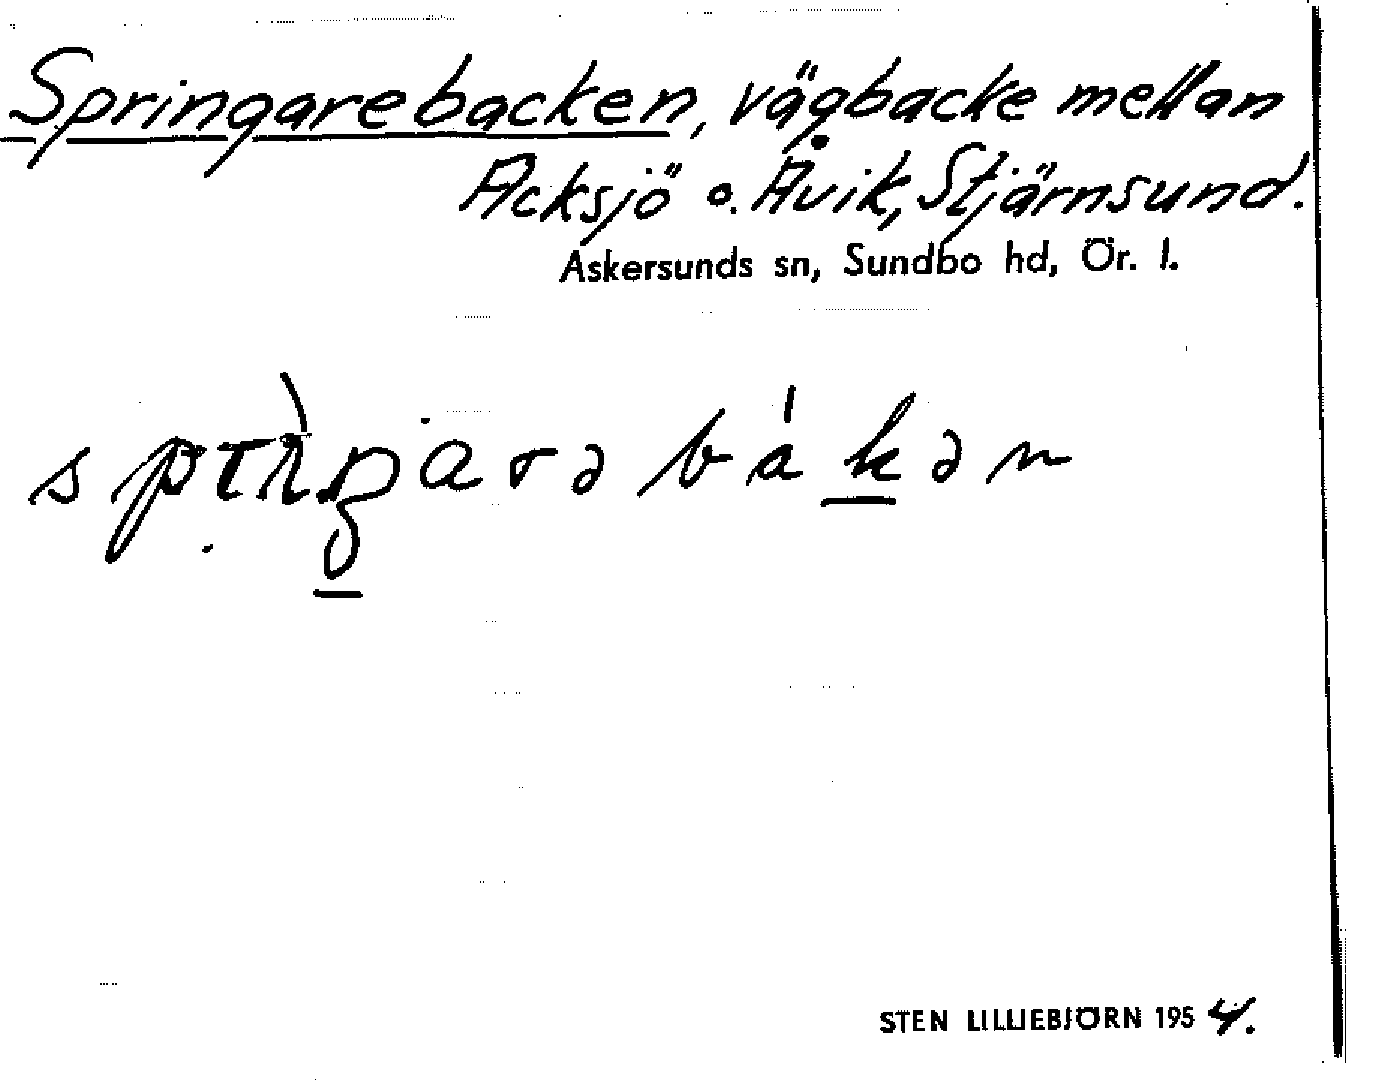 Springarebacken, vägbacke mellan
Acksjö o. Åvik, Stjärnsund.
Askersunds sn, Sundbo hd, Ör. l.
STEN LILLIEBJÖRN 1954.